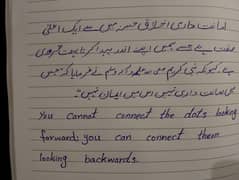 امانت داری اخلاق حسنہ میں سے ایک اعلیٰ
صفت ہے جسے ہمیں اپنے اندر پیدا کرنا بہت ضروری
ہے، کیونکہ نبی کریم صلی اللہ علیہ وسلم نے فرمایا کہ "جس
میں امانت داری نہیں اس میں ایمان نہیں"۔
You cannot connect the dots looking
forward; you can connect them
looking backwards.